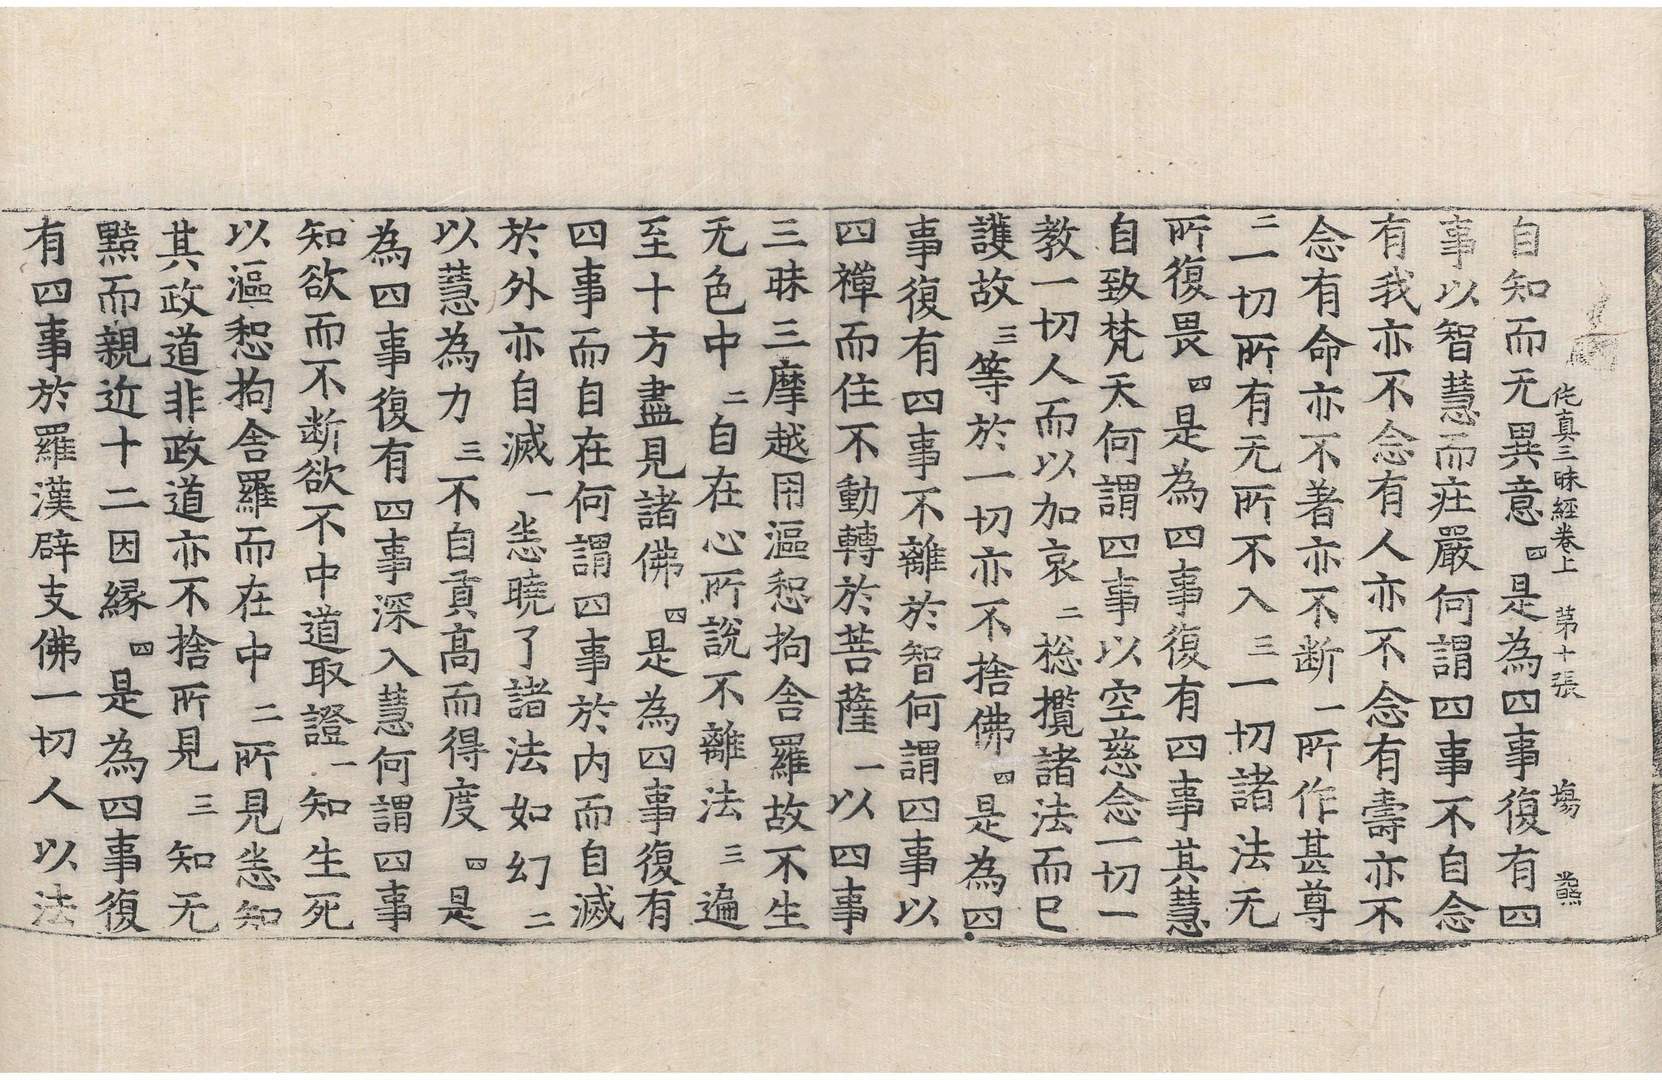 伅真三昧經卷上 第十張 塲 㷱
自知而无異意四是為四事復有四
事以智慧而庄嚴何謂四事不自念
有我亦不念有人亦不念有壽亦不
念有命亦不著亦不断一所作甚尊
二一切所有无所不入三一切諸法无
所復畏四是為四事復有四事其慧
自致梵天何謂四事以空慈念一切一
教一切人而以加哀二捴攬諸法而已
護故三等於一切亦不捨佛四是為四
事復有四事不離於智何謂四事以
四禪而住不動轉於菩薩一以四事
三昧三摩越用漚惒拘舍羅故不生
无色中二自在心所說不離法三遍
至十方盡見諸佛四是為四事復有
四事而自在何謂四事於内而自滅
於外亦自滅一悉曉了諸法如幻二
以慧為力三不自貢高而得度四是
為四事復有四事深入慧何謂四事
知欲而不断欲不中道取證一知生死
以漚惒拘舍羅而在中二所見悉知
其政道非政道亦不捨所見三知无
黠而親近十二因緣四是為四事復
有四事於羅漢辟支佛一切人以法